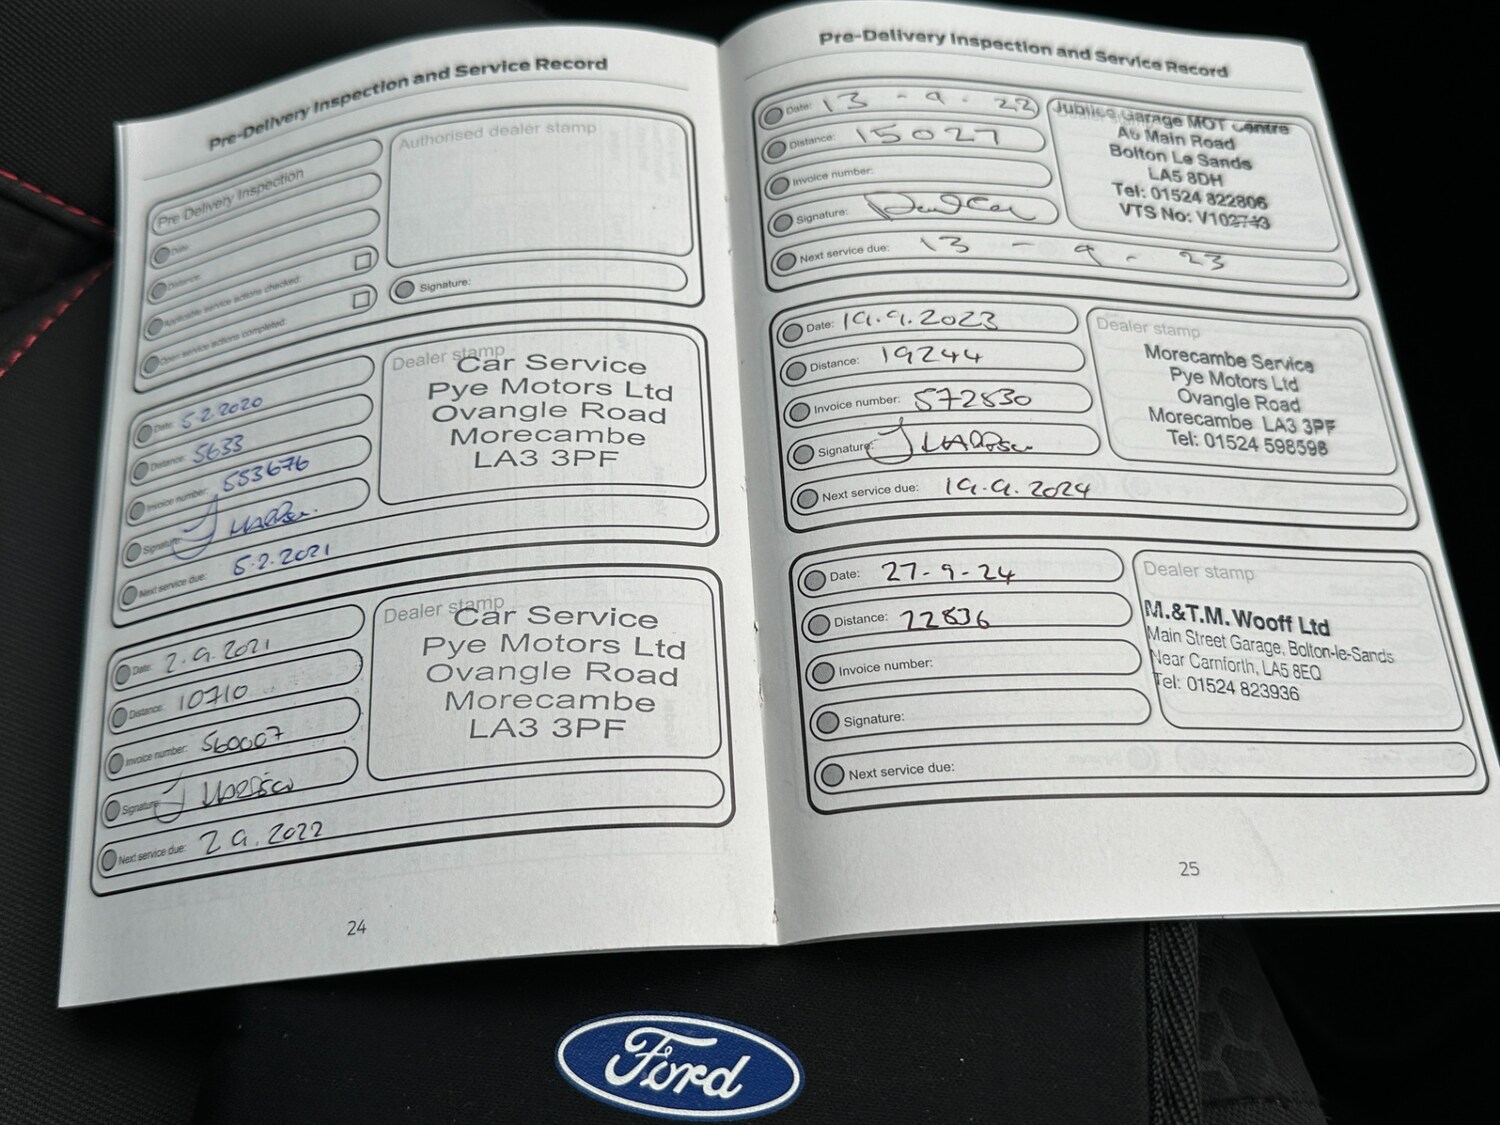 Pre-Delivery Inspection and Service Record
Pre Delivery Inspection
Date:
Distance:
Applicable service actions checked:
Open service actions completed:
Authorised dealer stamp
Signature:
Date: 5.2.2020
Distance: 5633
Invoice number: 553676
Signature:
Next service due: 5.2.2021
Dealer stamp
Car Service
Pye Motors Ltd
Ovangle Road
Morecambe
LA3 3PF
Date: 2.9.2021
Distance: 10710
Invoice number: 560007
Signature:
Next service due: 2 9.2022
Dealer stamp
Car Service
Pye Motors Ltd
Ovangle Road
Morecambe
LA3 3PF
24
Pre-Delivery Inspection and Service Record
Date: 13 - 9 - 22
Distance: 15027
Invoice number:
Signature:
Next service due: 13 - 9 - 23
Jubilee Garage MOT Centre
A6 Main Road
Bolton Le Sands
LA5 8DH
Tel: 01524 822806
VTS No: V102743
Date: 19.9.2023
Distance: 19244
Invoice number: 572830
Signature:
Next service due: 19.9.2024
Dealer stamp
Morecambe Service
Pye Motors Ltd
Ovangle Road
Morecambe LA3 3PF
Tel: 01524 598598
Date: 27-9-24
Distance: 22836
Invoice number:
Signature:
Next service due:
Dealer stamp
M.&T.M. Wooff Ltd
Main Street Garage, Bolton-le-Sands
Near Carnforth, LA5 8EQ
Tel: 01524 823936
25
Ford